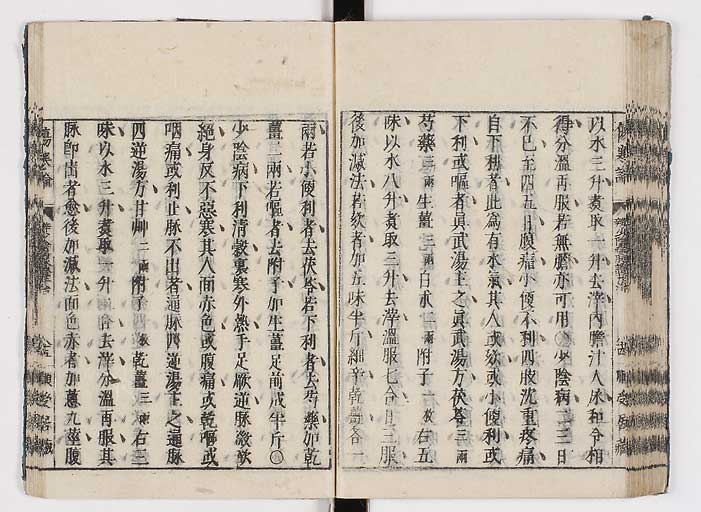 以水三升煮取一升去滓內膽汁人尿和令相
得分溫再服若無膽亦可用○少陰病二三日
不已至四五日腹痛小便不利四肢沈重疼痛
自下利者此為有水氣其人或欬或小便利或
下利或嘔者眞武湯主之眞武湯方茯苓三兩
芍藥三兩生薑三兩白朮二兩附子一枚右五
味以水八升煮取三升去滓溫服七合日三服
後加減法若欬者加五味半斤細辛乾薑各一
兩若小便利者去茯苓若下利者去芍藥加乾
薑二兩若嘔者去附子加生薑足前成半斤○
少陰病下利清穀裏寒外熱手足厥逆脉微欲
絕身反不惡寒其人面赤色或腹痛或乾嘔或
咽痛或利止脉不出者通脉四逆湯主之通脉
四逆湯方甘艸二兩附子一枚乾薑三兩右三
味以水三升煮取一升二合去滓分溫再服其
脉卽出者愈後加減法面色赤者加蔥九莖腹
傷寒論